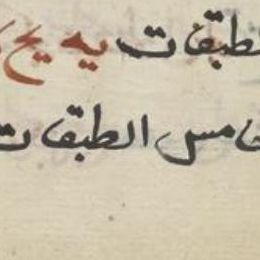 الطبقات يه يح
خامس الطبقات